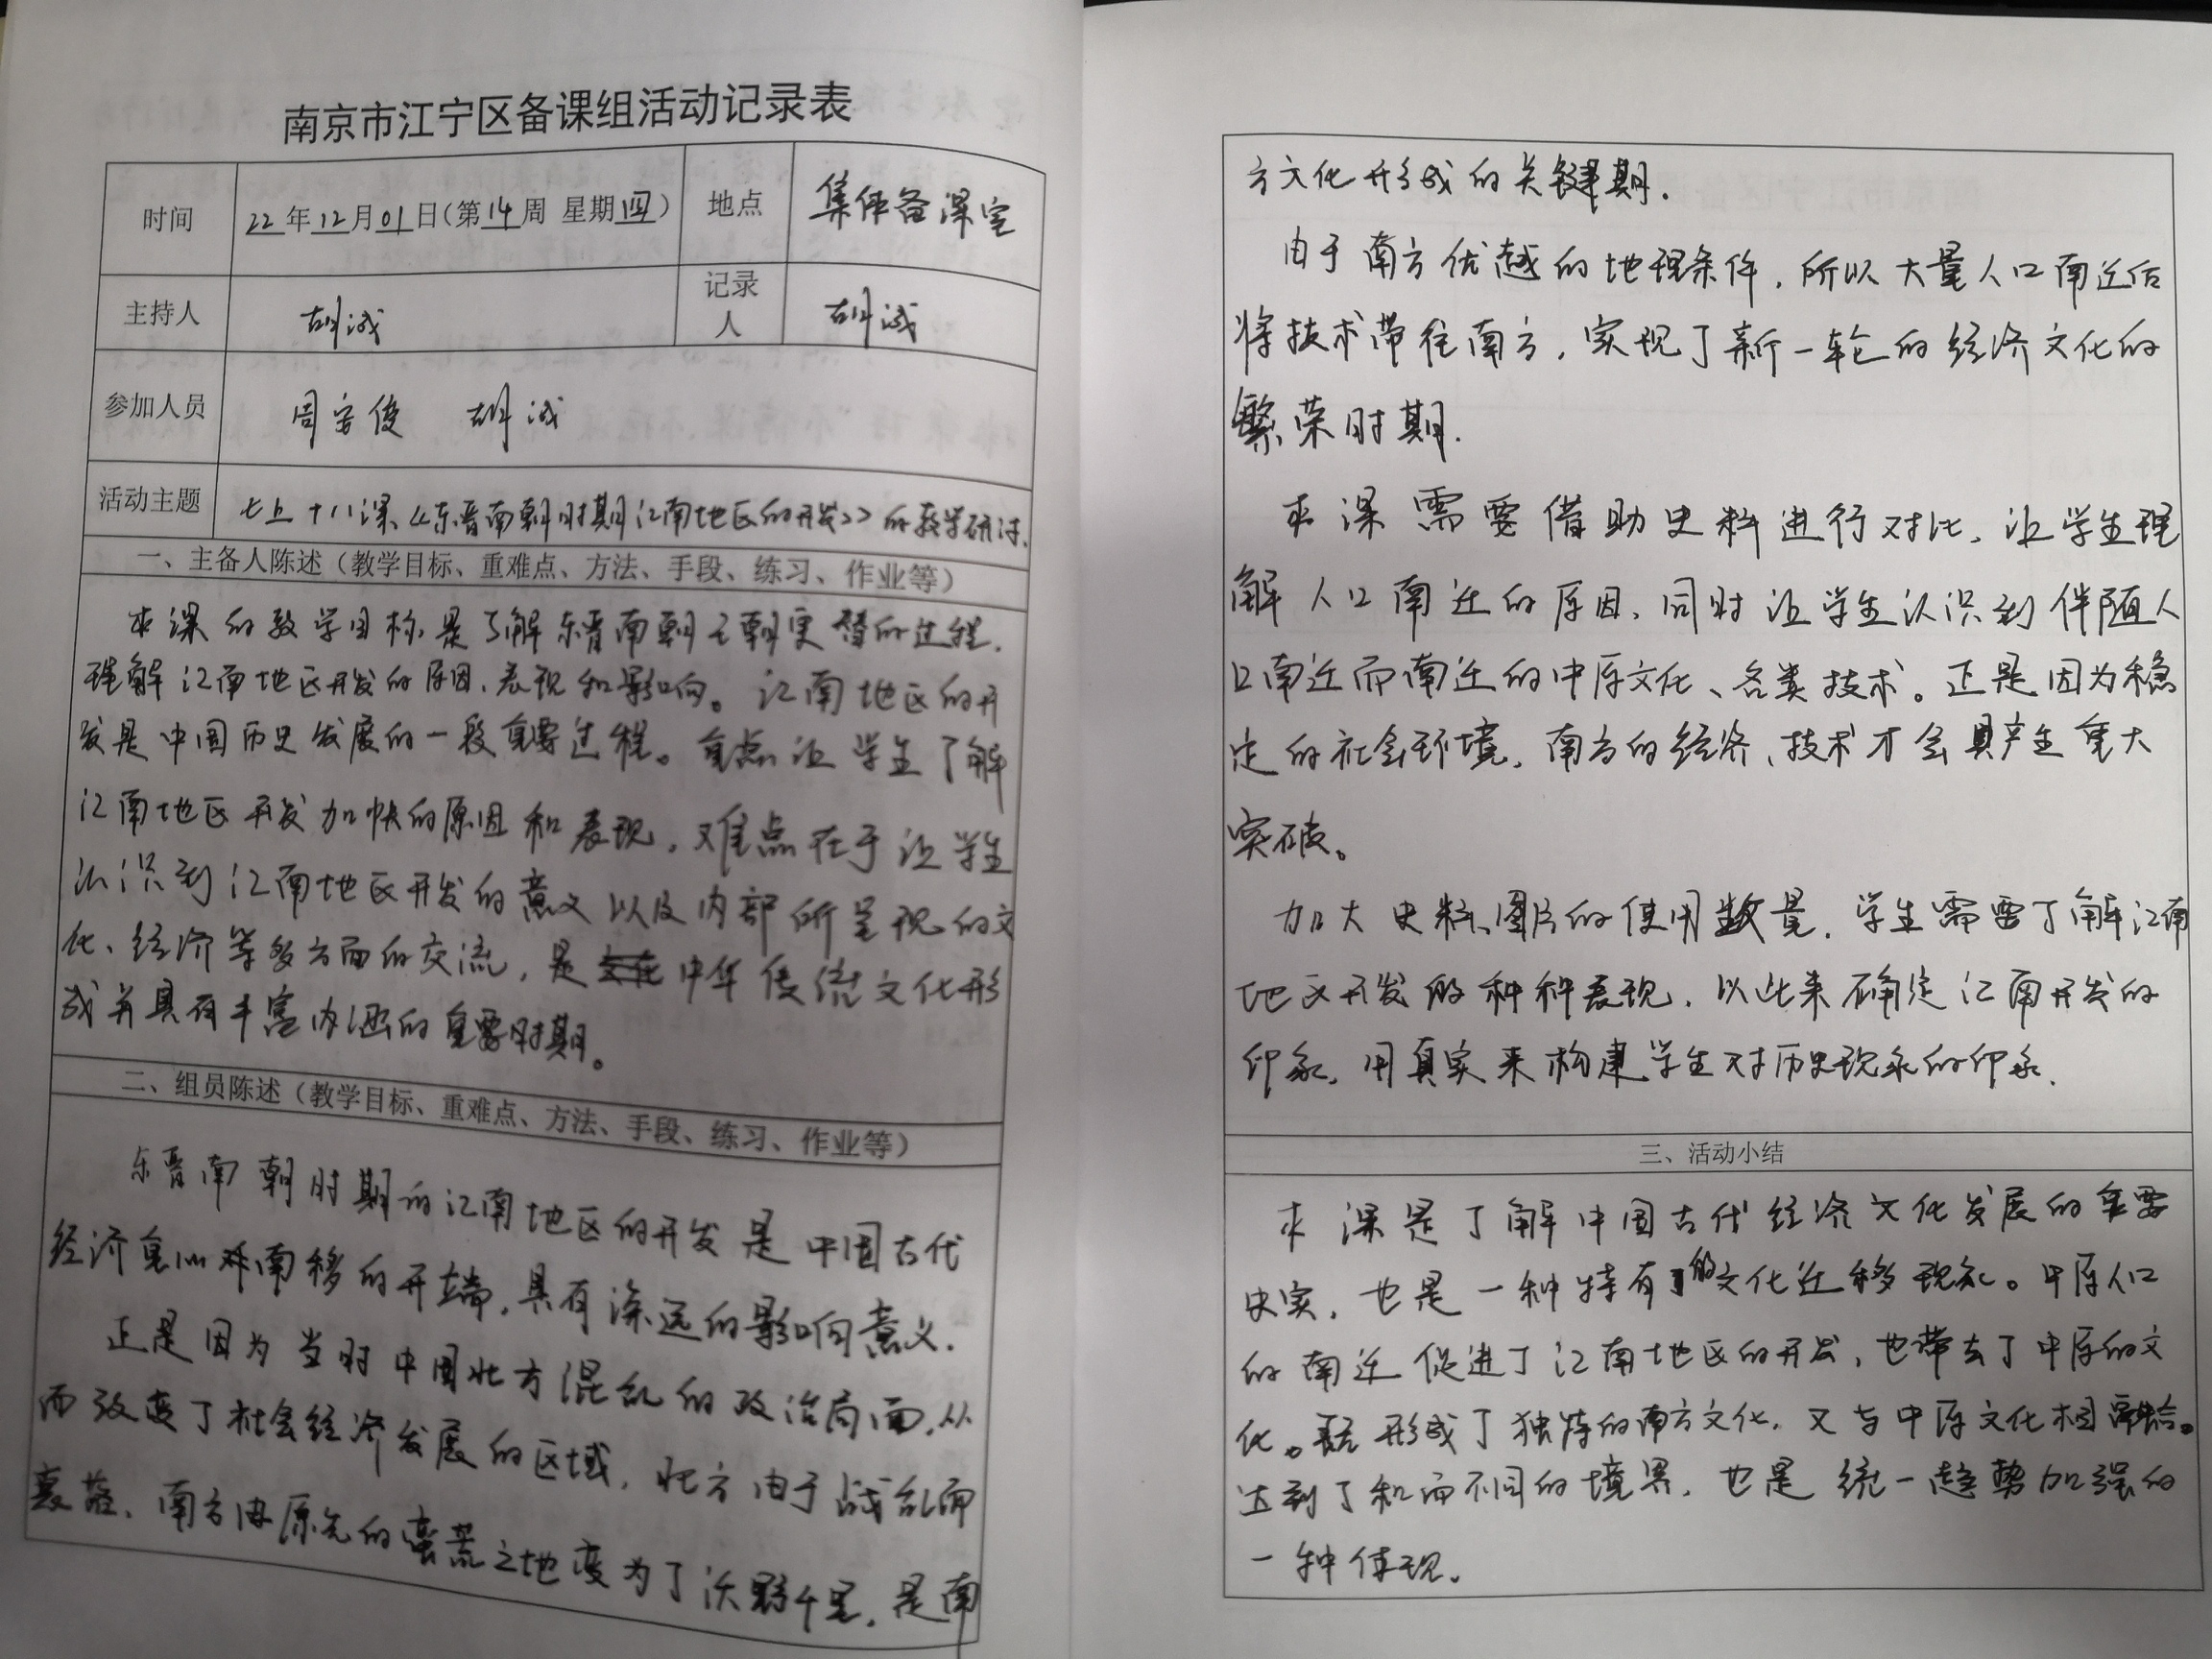 南京市江宁区备课组活动记录表
时间 22年12月01日(第14周 星期四) 地点 集体备课室
主持人 胡诚 记录人 胡诚
参加人员 周安俊 胡诚
活动主题 七上十八课《东晋南朝时期江南地区的开发》的教学研讨.
一、主备人陈述(教学目标、重难点、方法、手段、练习、作业等)
本课的教学目标是了解东晋南朝王朝更替的过程.
理解江南地区开发的原因、表现和影响。江南地区的开
发是中国历史发展的一段重要过程。重点让学生了解
江南地区开发加快的原因和表现,难点在于让学生
认识到江南地区开发的意义以及内部所呈现的文
化、经济等多方面的交流,是中华传统文化形
成并具有丰富内涵的重要时期。
二、组员陈述(教学目标、重难点、方法、手段、练习、作业等)
东晋南朝时期的江南地区的开发是中国古代
经济重心南移的开端,具有深远的影响意义.
正是因为当时中国北方混乱的政治局面,从
而改变了社会经济发展的区域,北方由于战乱而
衰落,南方由原先的蛮荒之地变为了沃野千里,是南
方文化形成的关键期.
由于南方优越的地理条件,所以大量人口南迁后
将技术带往南方,实现了新一轮的经济文化的
繁荣时期.
本课需要借助史料进行对比,让学生理
解人口南迁的原因,同时让学生认识到伴随人
口南迁而南迁的中原文化、各类技术。正是因为稳
定的社会环境,南方的经济、技术才会具产生重大
突破。
加大史料、图片的使用数量,学生需要了解江南
地区开发的种种表现,以此来确定江南开发的
印象,用真实来构建学生对历史现象的印象.
三、活动小结
本课是了解中国古代经济文化发展的重要
史实,也是一种特有的文化迁移现象。中原人口
的南迁促进了江南地区的开发,也带去了中原的文
化。形成了独特的南方文化,又与中原文化相融合。
达到了和而不同的境界,也是统一趋势加强的
一种体现.